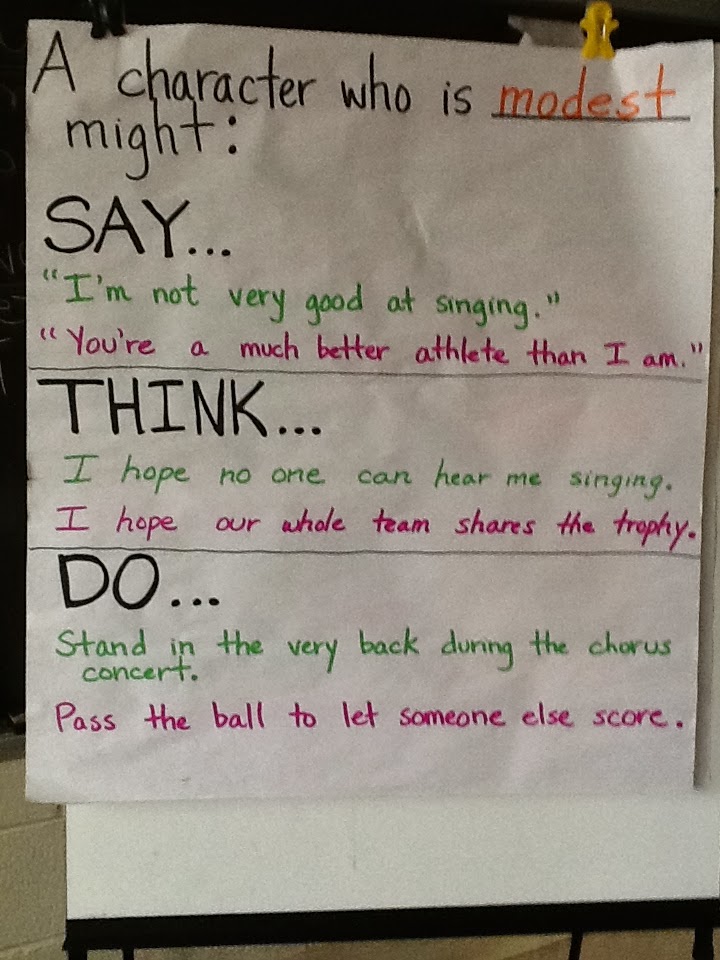 A character who is modest
might:
SAY...
"I'm not very good at singing."
"You're a much better athlete than I am."
THINK...
I hope no one can hear me singing.
I hope our whole team shares the trophy.
DO...
Stand in the very back during the chorus
concert.
Pass the ball to let someone else score.